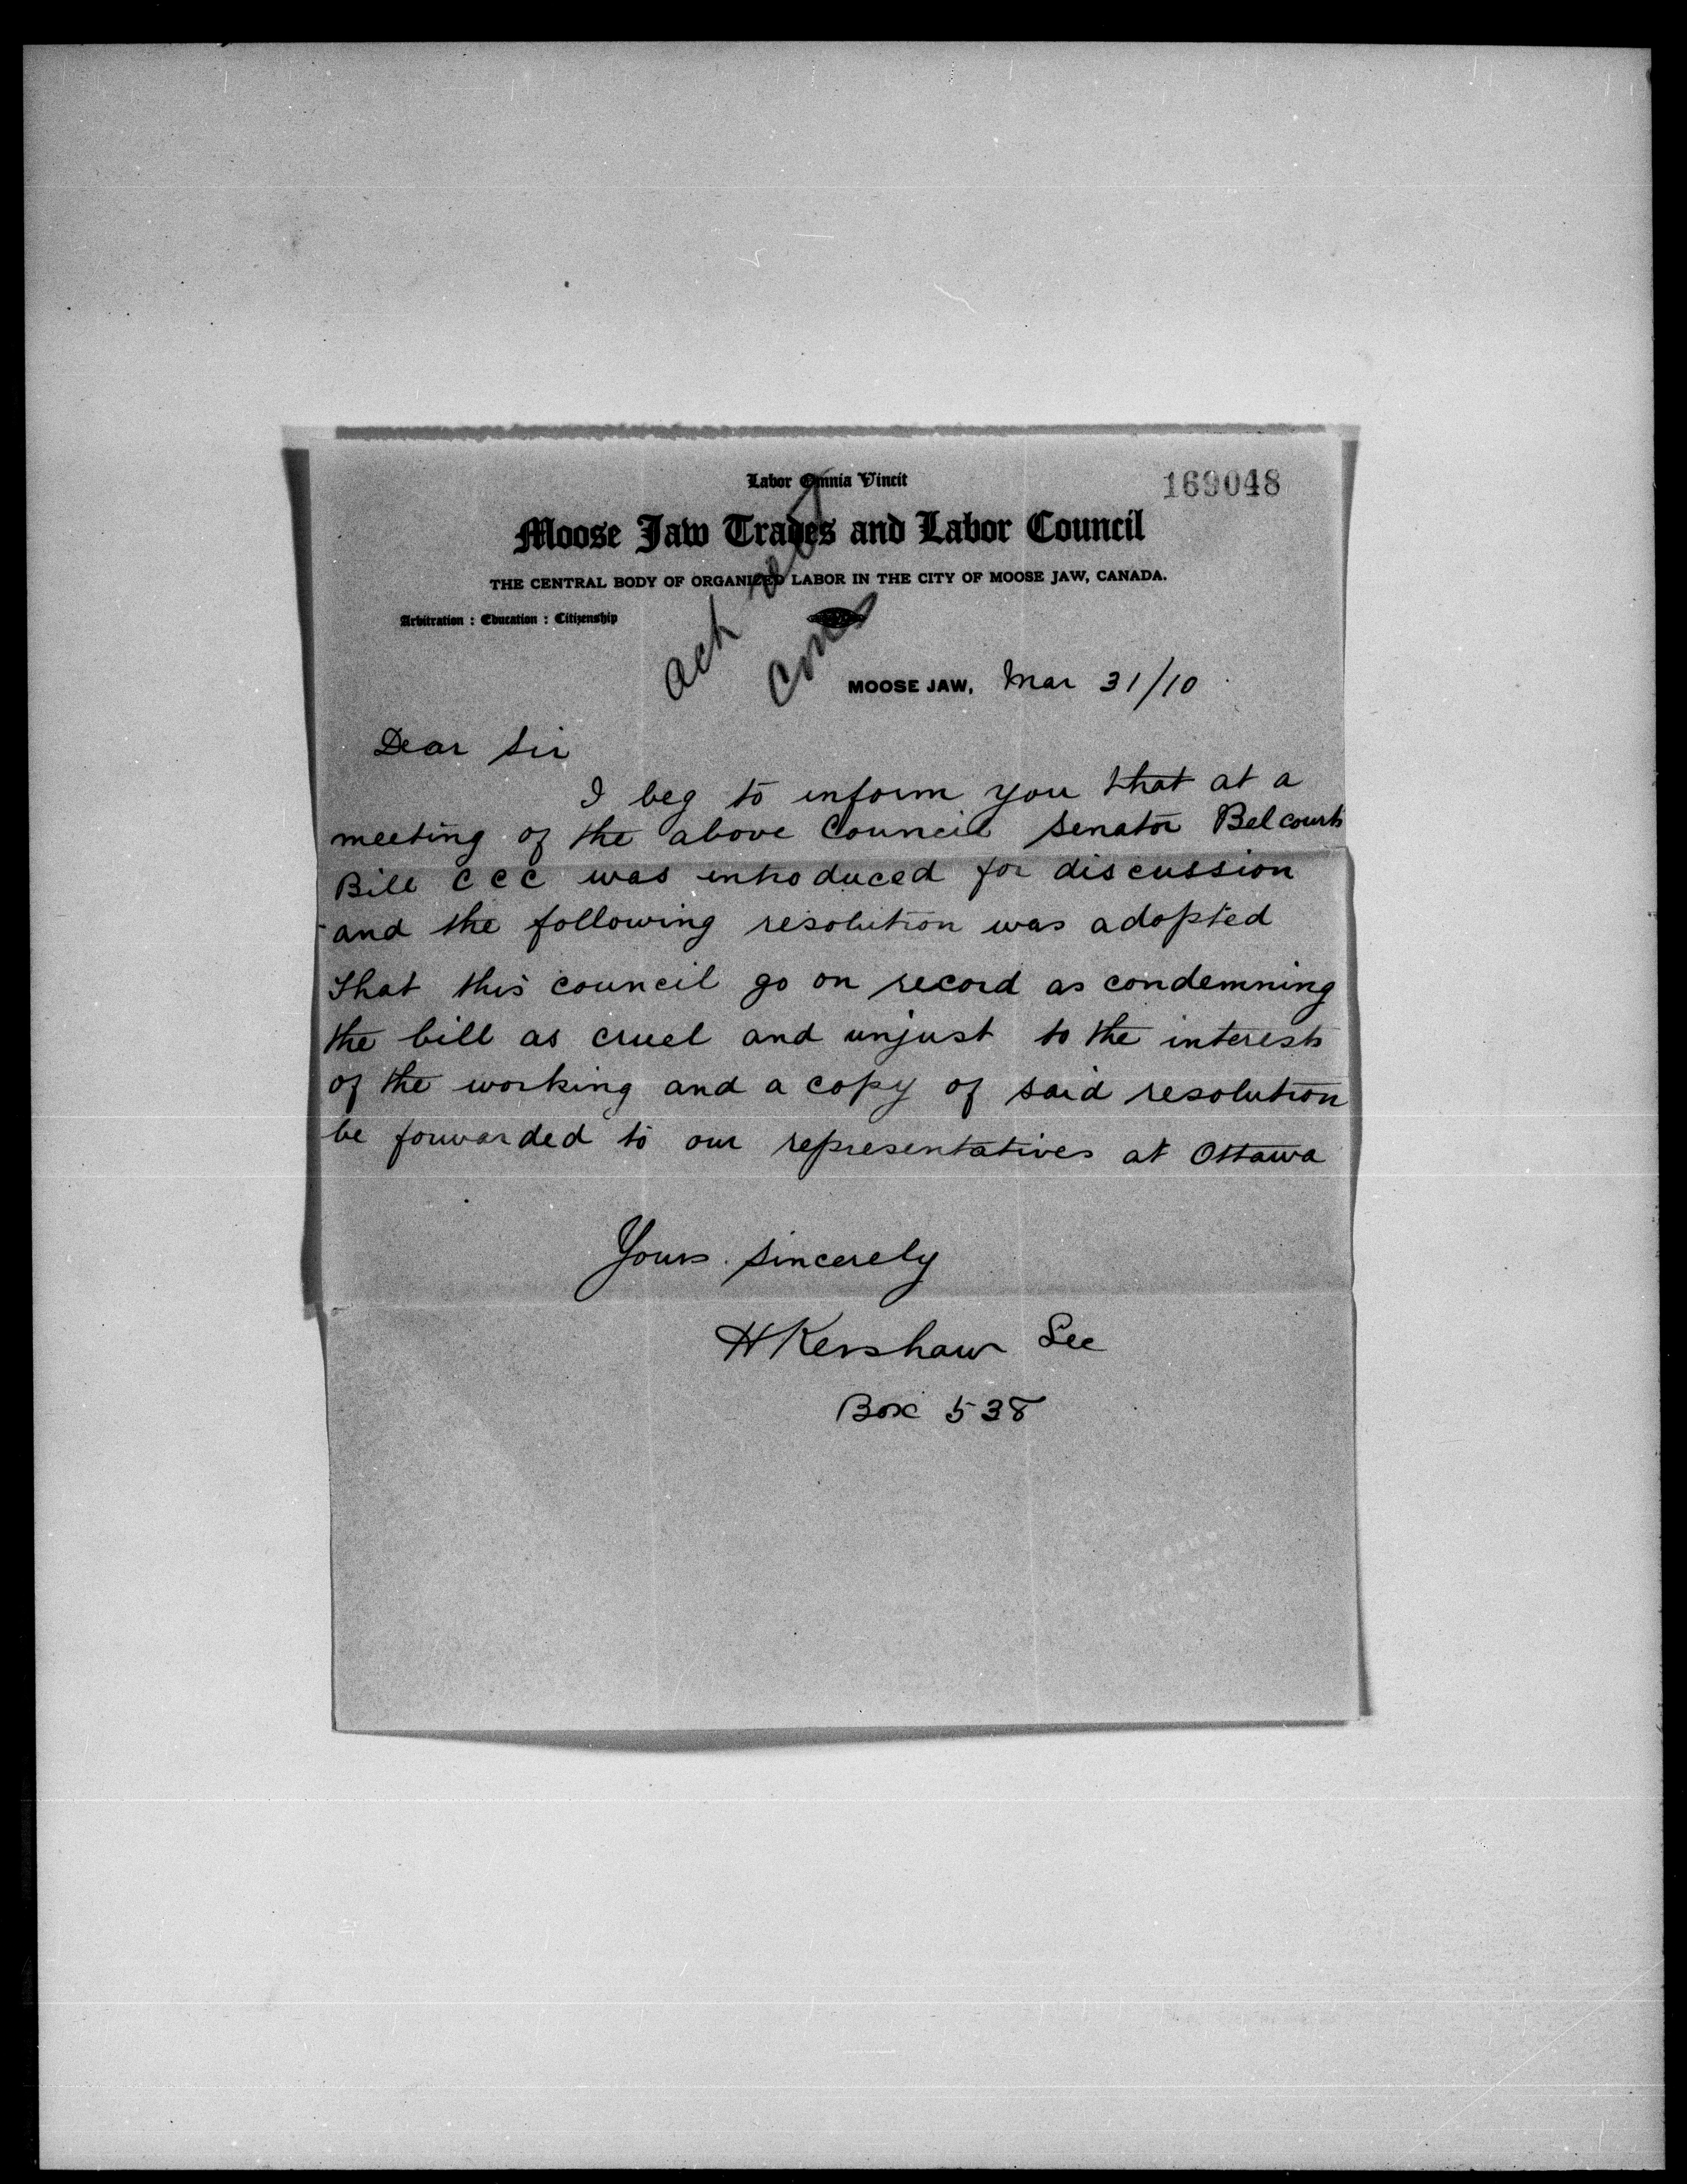 Labor Omnia Vincit
169048
Moose Jaw Trades and Labor Council
THE CENTRAL BODY OF ORGANIZED LABOR IN THE CITY OF MOOSE JAW, CANADA.
Arbitration : Education : Citizenship
ack
MOOSE JAW, Mar 31/10
Dear Sir
I beg to inform you that at a
meeting of the above Council Senator Belcourts
Bill C C C was introduced for discussion
and the following resolution was adopted
That this council go on record as condemning
the bill as cruel and unjust to the interests
of the working and a copy of said resolution
be forwarded to our representatives at Ottawa
Yours sincerely
H Kershaw Sec
Box 538